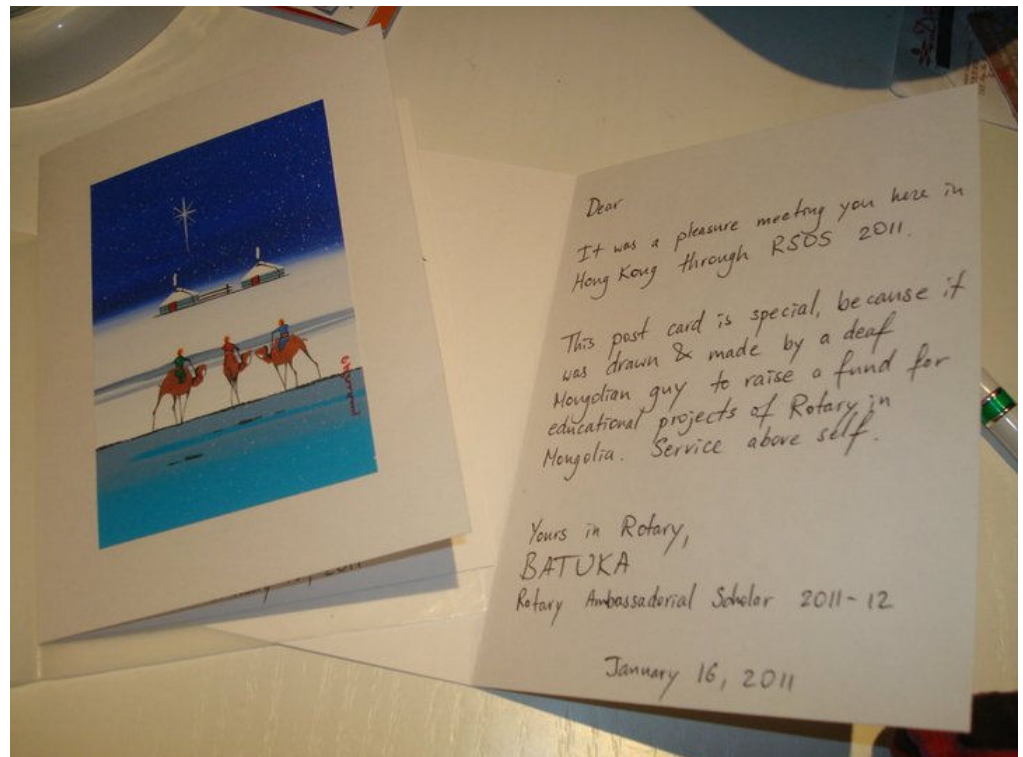 Dear
It was a pleasure meeting you here in
Hong Kong through RSOS 2011.
This post card is special, because it
was drawn & made by a deaf
Mongolian guy to raise a fund for
educational projects of Rotary in
Mongolia. Service above self.
Yours in Rotary,
BATUKA
Rotary Ambassadorial Scholar 2011-12
January 16, 2011